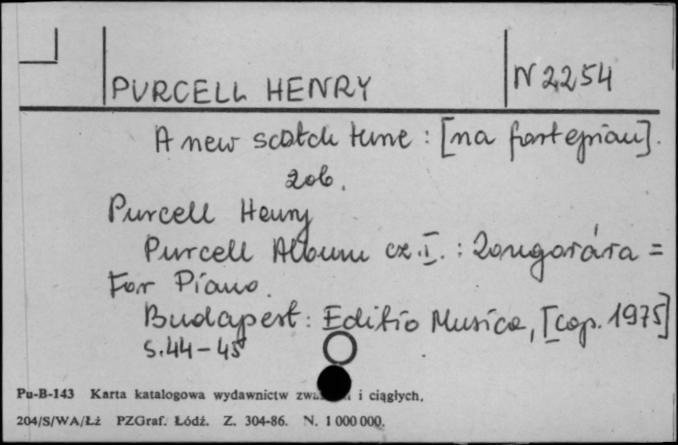 PURCELL HENRY
N 2254
A new scotch tune : [na fortepian].
zob.
Purcell Henry
Purcell Album cz. I. : Zongorára =
For Piano.
Budapest : Editio Musica, [cop. 1975]
s. 44-45
Pu-B-143 Karta katalogowa wydawnictw i ciągłych.
204/S/WA/Łż PZGraf. Łódź. Z. 304-86. N. 1 000 000.